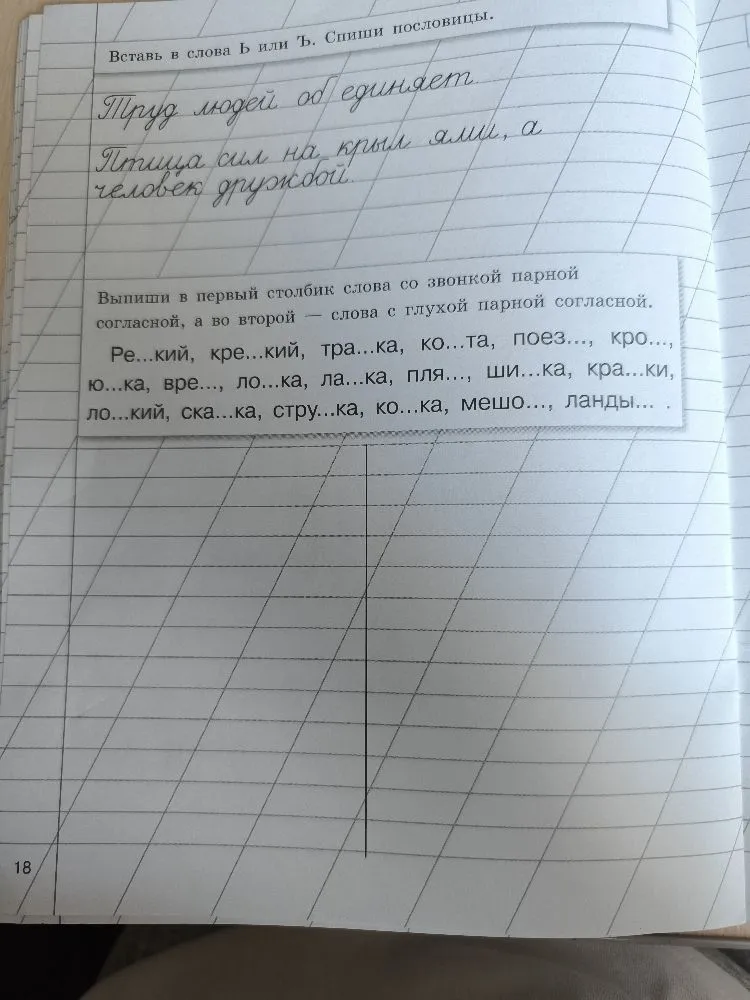 Вставь в слова Ь или Ъ. Спиши пословицы.
Труд людей об единяет.
Птица сил на крыл ями, а
человек дружбой.
Выпиши в первый столбик слова со звонкой парной
согласной, а во второй — слова с глухой парной согласной.
Ре...кий, кре...кий, тра...ка, ко...та, поез..., кро...,
ю...ка, вре..., ло...ка, ла...ка, пля..., ши...ка, кра...ки,
ло...кий, ска...ка, стру...ка, ко...ка, мешо..., ланды... .
18